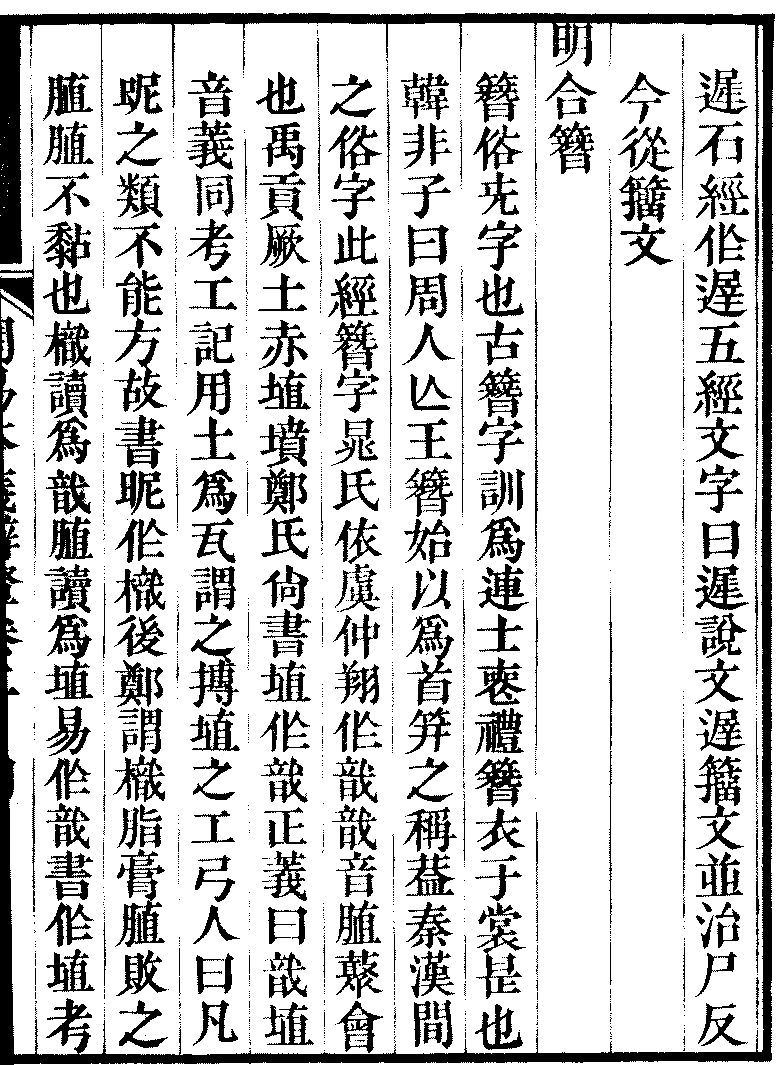 遲石經作遟五經文字曰遲說文遟籒文並治尸反
今從籒文
明合簪
簪俗兂字也古簪字訓爲連士喪禮簪衣于裳是也
韓非子曰周人亾王簪始以爲首笄之稱葢秦漢間
之俗字此經簪字晁氏依虞仲翔作戠戠音䐈藂會
也禹貢厥土赤埴墳鄭氏尙書埴作戠正義曰戠埴
音義同考工記用土爲瓦謂之摶埴之工弓人曰凡
昵之類不能方故書昵作樴後鄭謂樴脂膏䐈敗之
䐈䐈不黏也樴讀爲戠䐈讀爲埴易作戠書作埴考